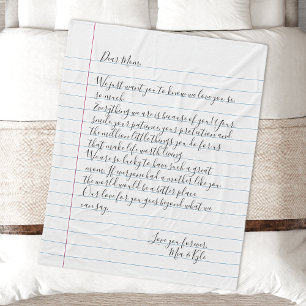 Dear Mom,
We just want you to know we love you so,
so much.
Everything we are is because of you! Your
smile, your patience, your protection and
the million little things you do for us
that make life worth living.
We are so lucky to have such a great
mom. If everyone had a mother like you
the world would be a better place.
Our love for you goes beyond what we
can say.
Love you forever,
Mia & Kyle